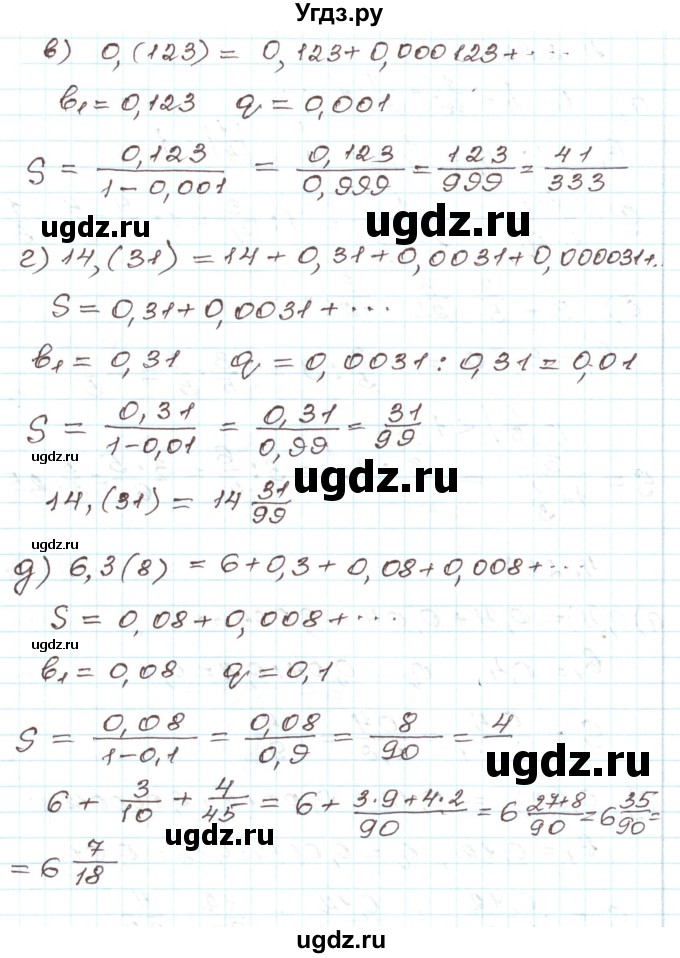 Угдз.ру
в) 0,(123) = 0,123+0,000123+...
b₁ = 0,123 q = 0,001
S = 0,123/(1-0,001) = 0,123/0,999 = 123/999 = 41/333
ugdz.ru ugdz.ru
г) 14,(31) = 14 + 0,31+0,0031+0,000031+..
S = 0,31+0,0031+...
b₁ = 0,31 q = 0,0031 : 0,31 = 0,01
S = 0,31/(1-0,01) = 0,31/0,99 = 31/99
ugdz.ru
14,(31) = 14 31/99
ugdz.ru
ugdz.ru
д) 6,3(8) = 6+0,3+0,08+0,008+...
S = 0,08+0,008+...
ugdz.ru
b₁ = 0,08 q = 0,1
S = 0,08/(1-0,1) = 0,08/0,9 = 8/90 = 4/
ugdz.ru
6 + 3/10 + 4/45 = 6 + (3·9+4·2)/90 = 6 (27+8)/90 = 6 35/90 =
ugdz.ru
= 6 7/18
ugdz.ru